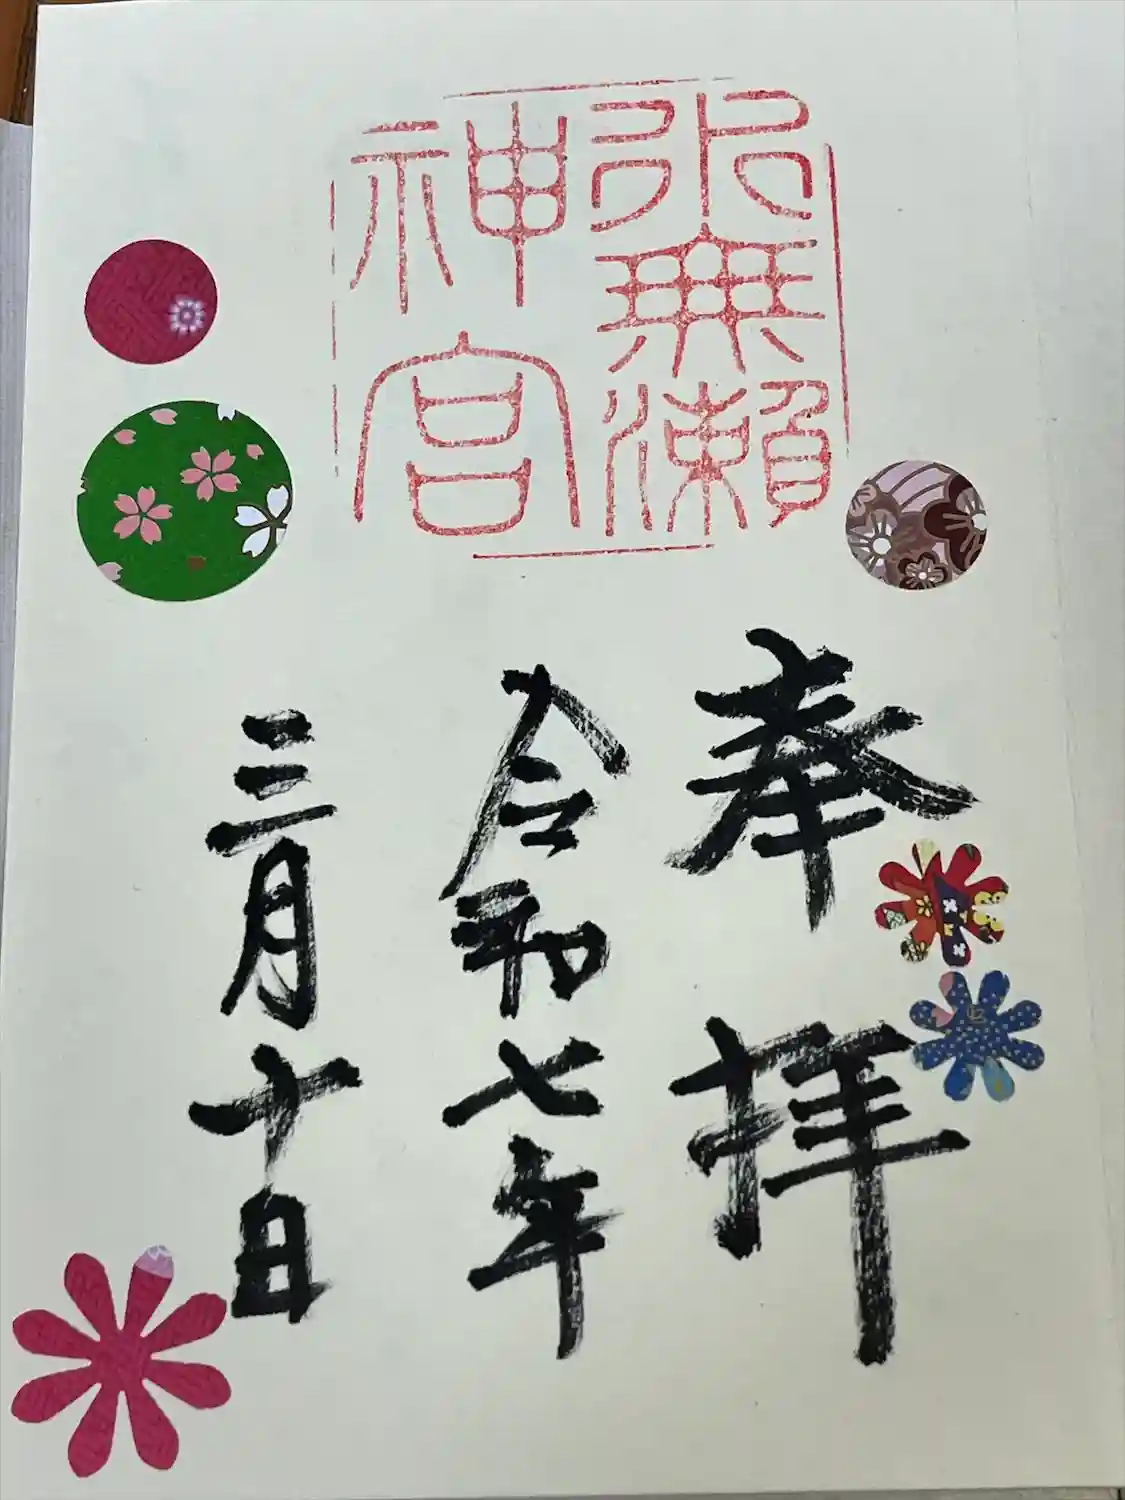 水無瀬
神宮
奉拝
令和七年
三月十日